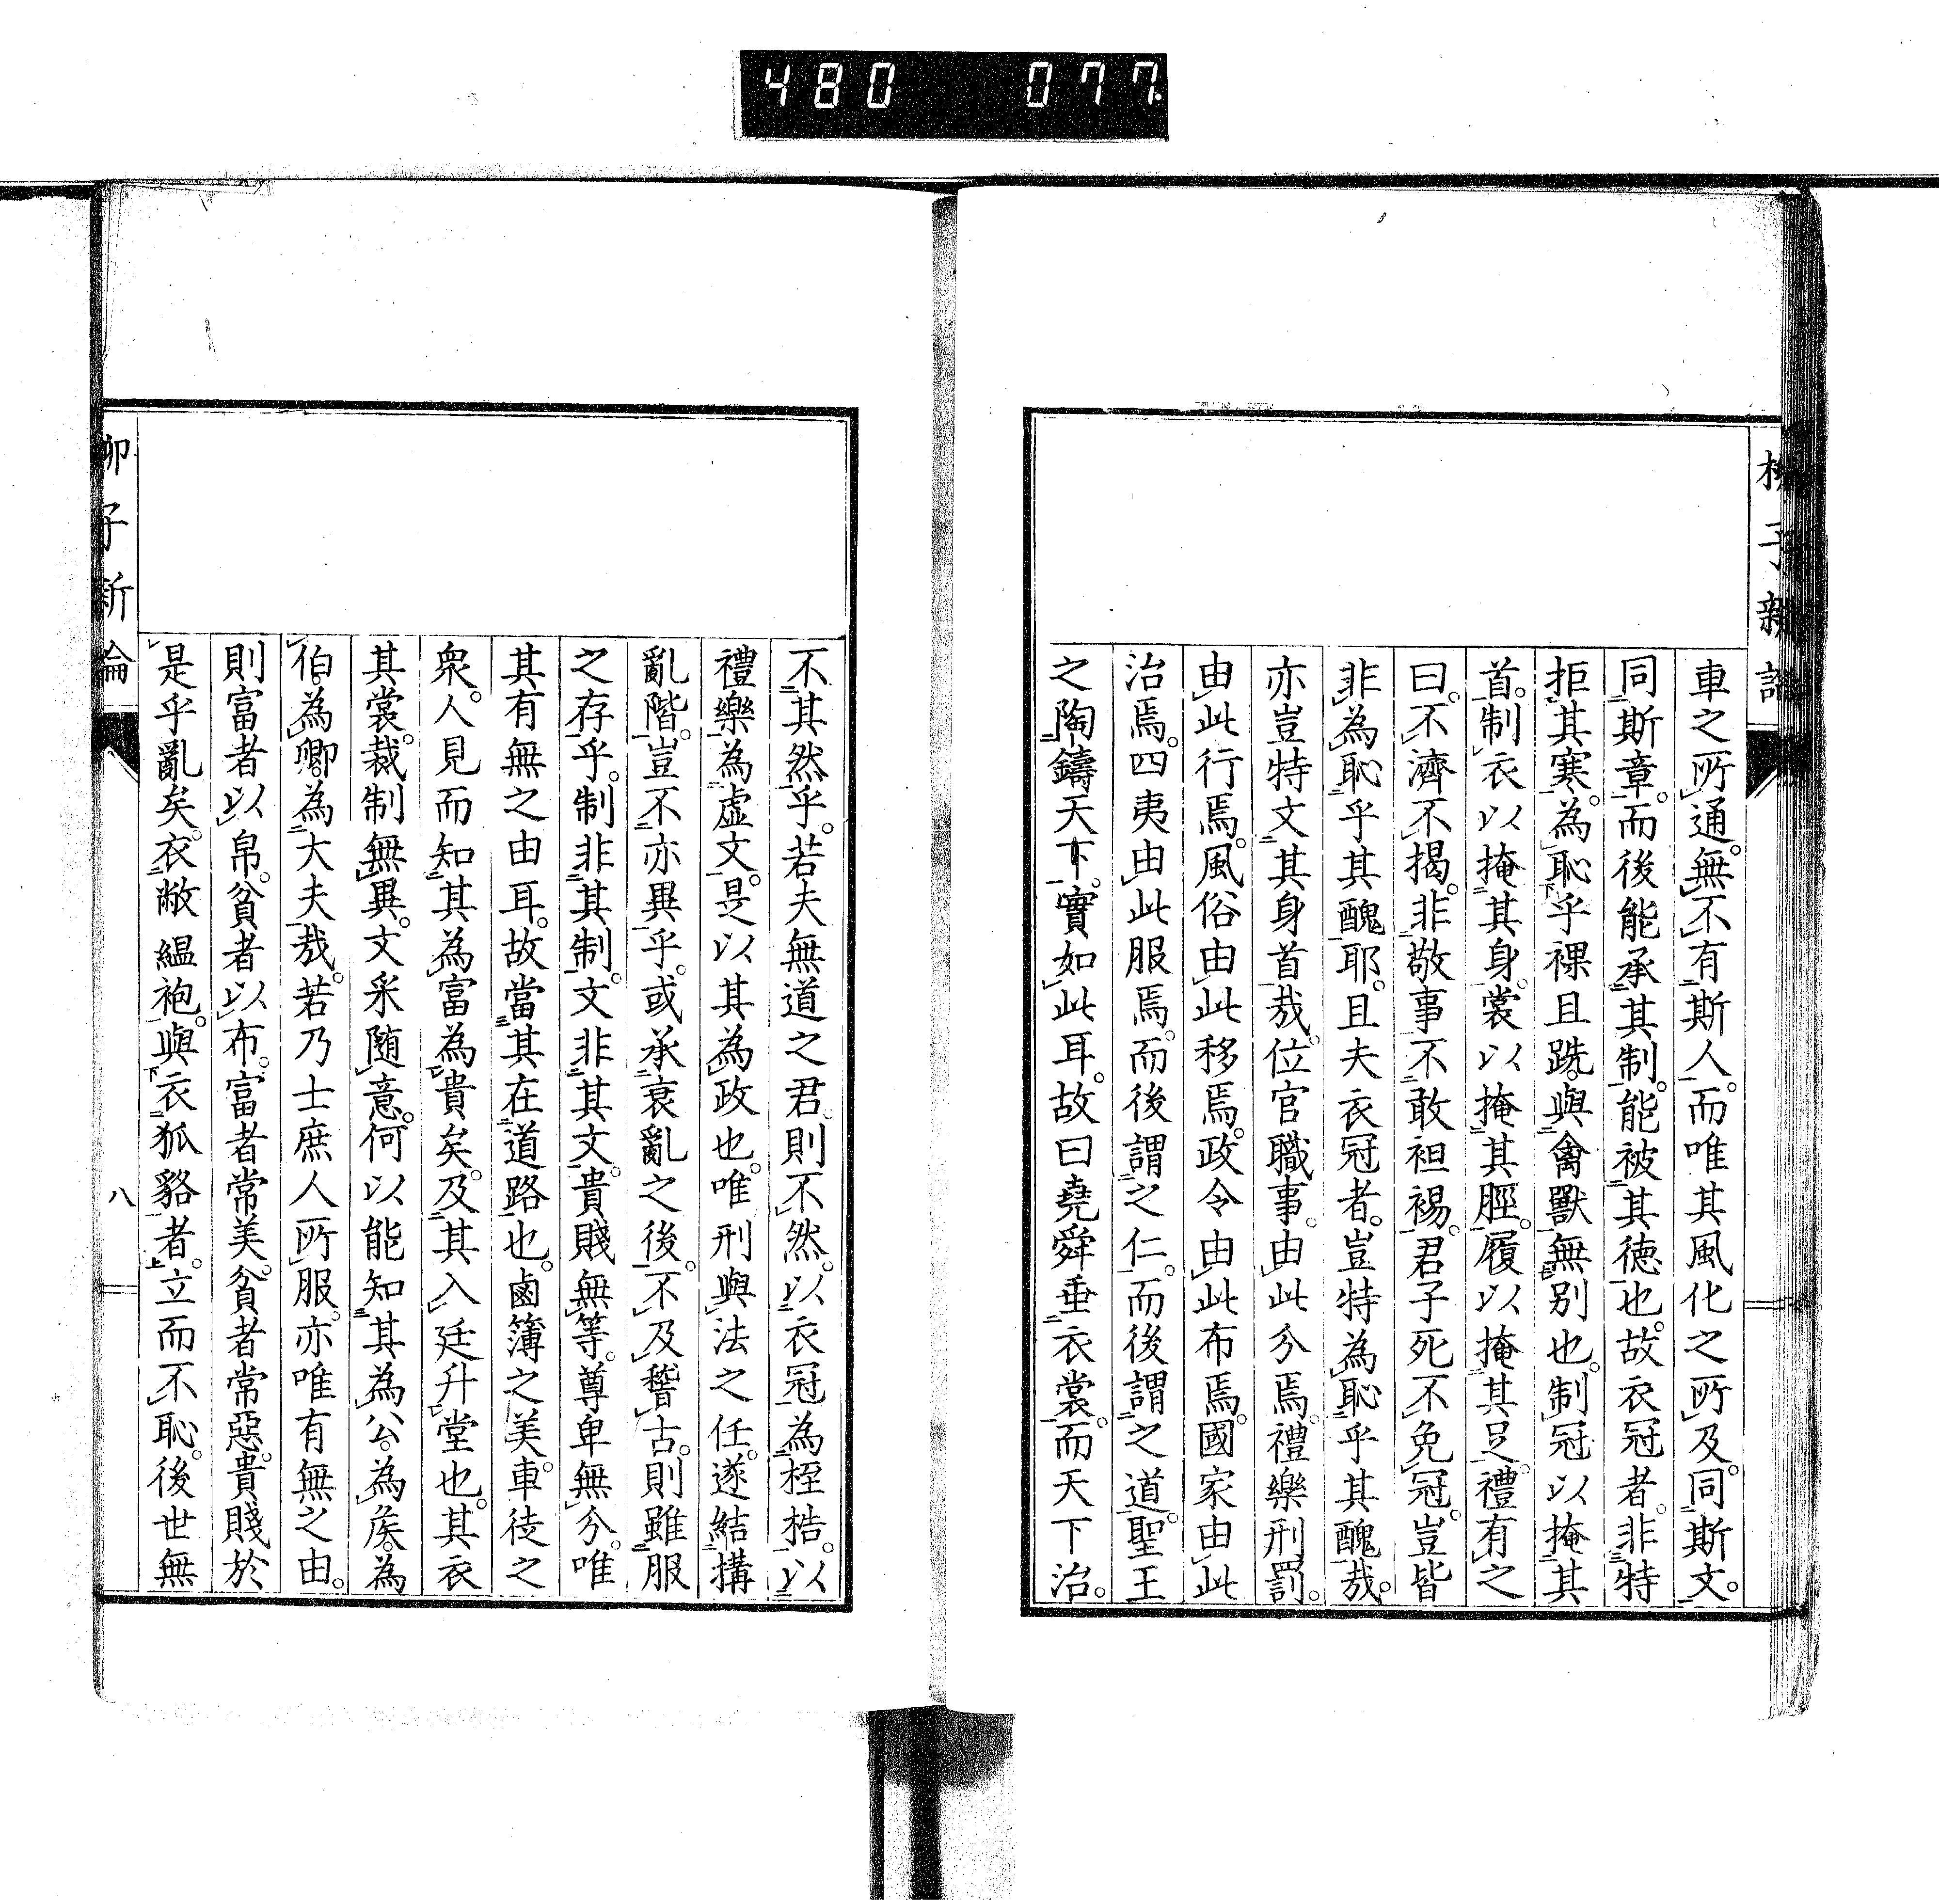 480 077
柳子新論
車之所通。無不有斯人。而唯其風化之所及。同斯文。
同斯章。而後能承其制。能被其德也。故衣冠者。非特
拒其寒。為恥乎裸且跣。與禽獸無別也。制冠以掩其
首。制衣以掩其身。裳以掩其脛。履以掩其足。禮有之
曰。不濟不揭。非敬事不敢袒裼。君子死不免冠。豈皆
非為恥乎其醜耶。且夫衣冠者。豈特為恥乎其醜哉。
亦豈特文其身首哉。位官職事。由此分焉。禮樂刑罰。
由此行焉。風俗由此移焉。政令由此布焉。國家由此
治焉。四夷由此服焉。而後謂之仁。而後謂之道。聖王
之陶鑄天下。實如此耳。故曰堯舜垂衣裳。而天下治。
不其然乎。若夫無道之君。則不然。以衣冠為桎梏。以
禮樂為虛文。是以其為政也。唯刑與法之任。遂結搆
亂階。豈不亦異乎。或承衰亂之後。不及稽古。則雖服
之存乎。制非其制。文非其文。貴賤無等。尊卑無分。唯
其有無之由耳。故當其在道路也。鹵簿之美。車徒之
衆。人見而知其為富為貴矣。及其入廷升堂也。其衣
其裳。裁制無異。文采随意。何以能知其為公。為侯。為
伯。為卿。為大夫哉。若乃士庶人所服。亦唯有無之由。
則富者以帛。貧者以布。富者常美。貧者常惡。貴賤於
是乎亂矣。衣敝縕袍。與衣狐貉者。立而不恥。後世無
柳子新論 八